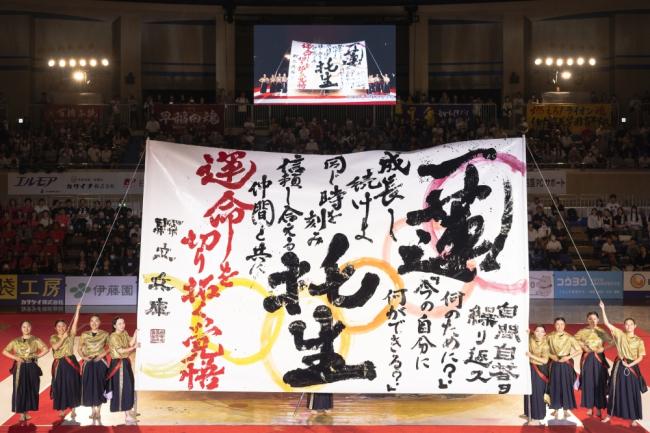 自問自答ヲ
繰り返ス
「何のために?」
「今の自分に
何ができる?」
一蓮
托生
成長し
続けよ
同じ時を刻み
信頼し合える
仲間と共に
運命を切り拓く覚悟
縣立兵庫
エルモア
袋工房
伊藤園
コウヨウ